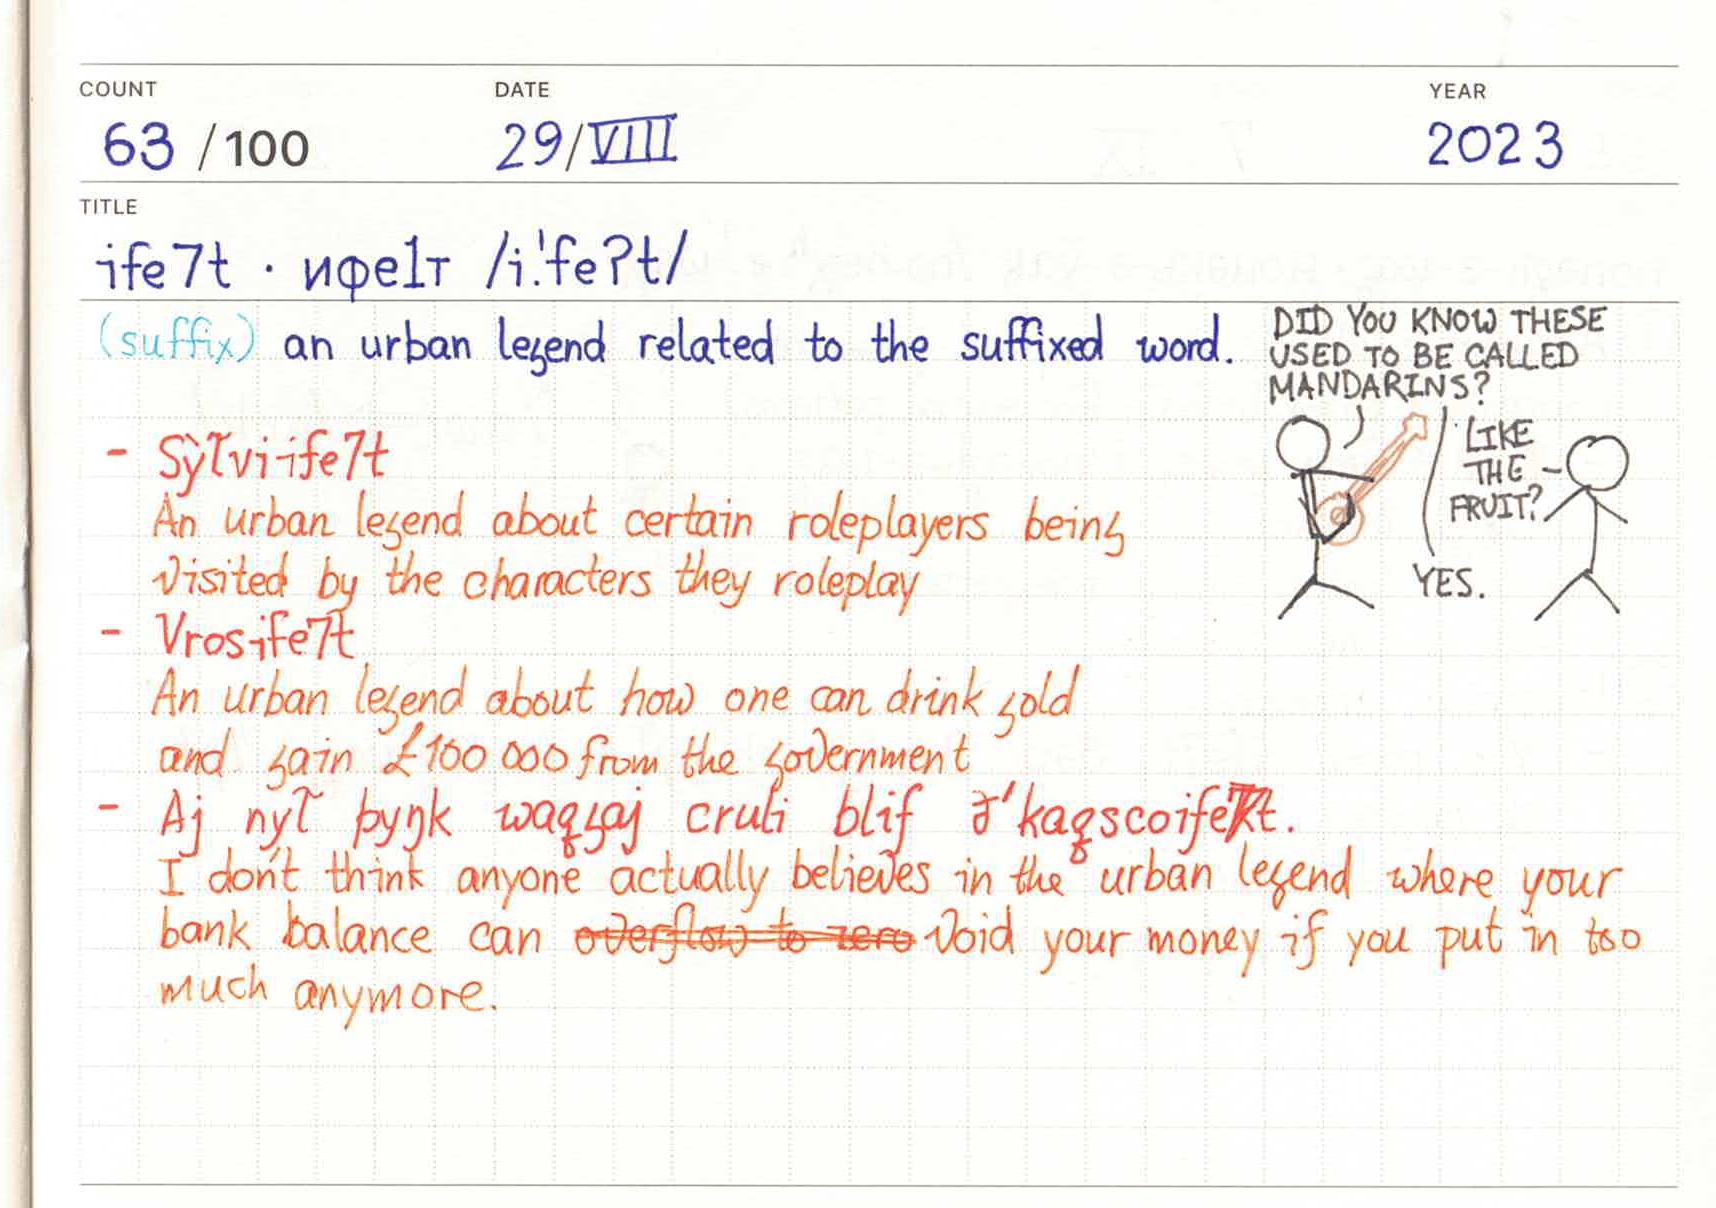 COUNT
63 /100
DATE
29/VIII
YEAR
2023
TITLE
ife7t · ифе1т /i.ˈfeʔt/
(suffix) an urban legend related to the suffixed word.
DID YOU KNOW THESE
USED TO BE CALLED
MANDARINS?
LIKE
THE
FRUIT?
YES.
- ife7t
An urban legend about certain roleplayers being
visited by the characters they roleplay
- Vrosife7t
An urban legend about how one can drink gold
and gain £100 000 from the government
- Aj þyŋk blif
I don't think anyone actually believes in the urban legend where your
bank balance can overflow to zero void your money if you put in too
much anymore.